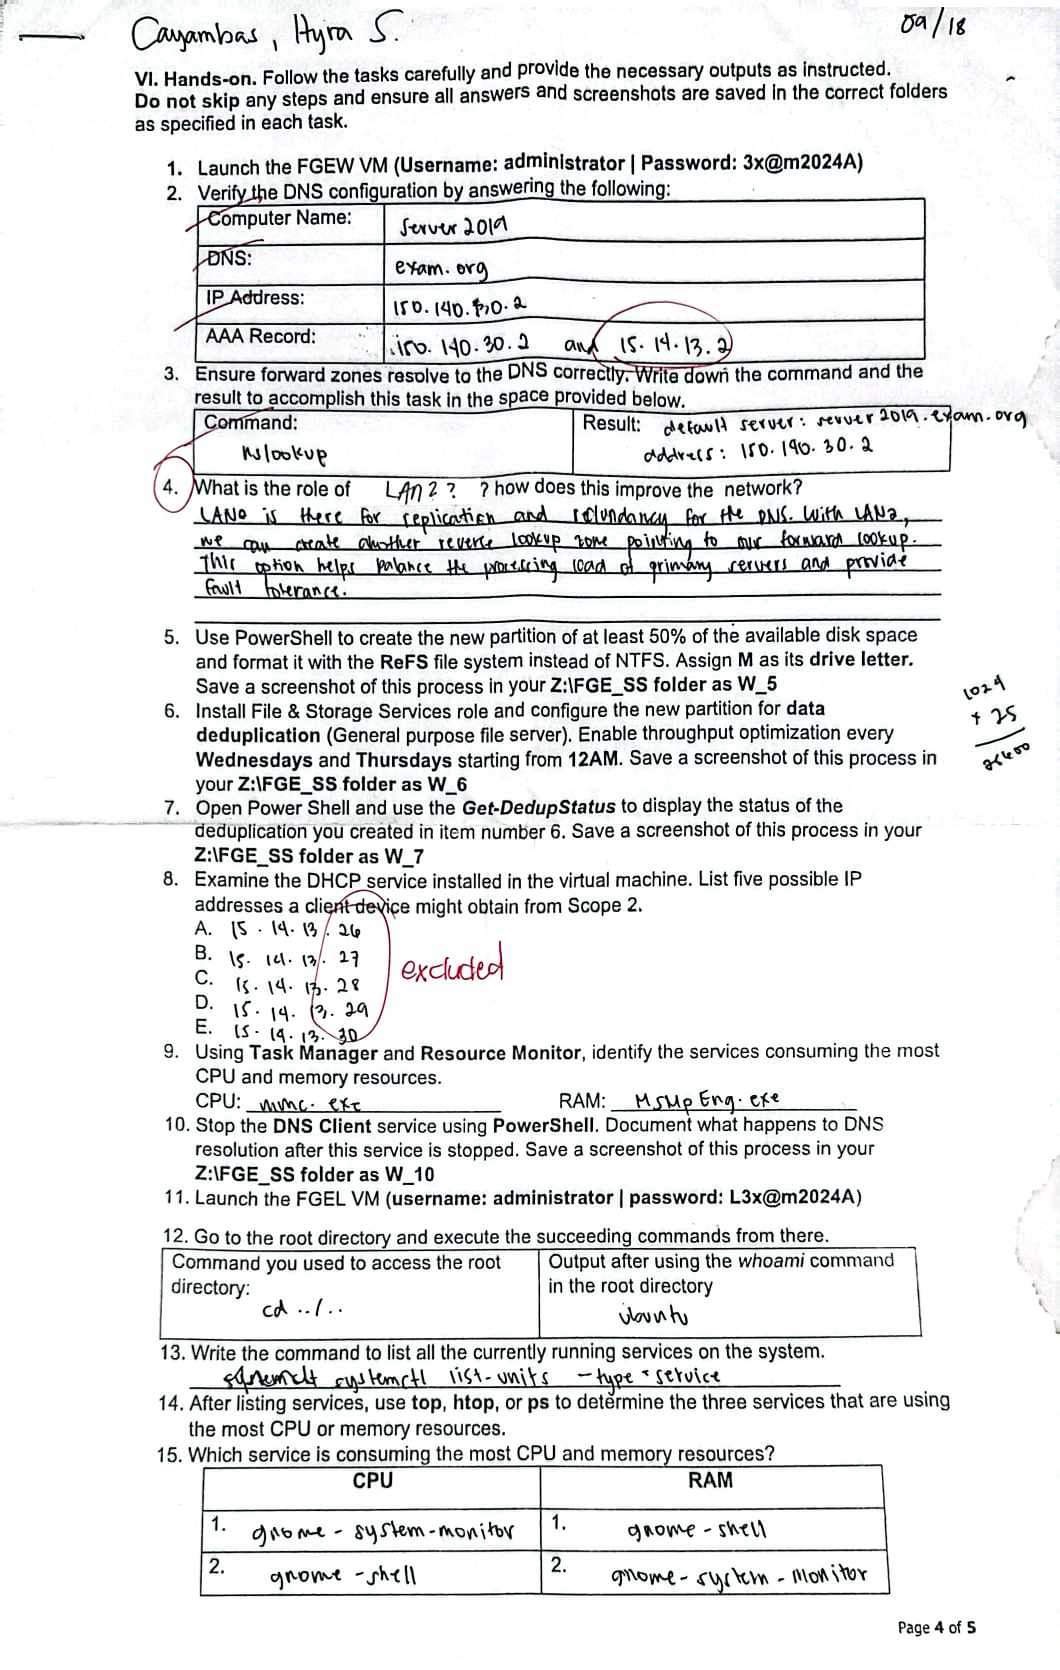 Cayambas, Hyra S.
09/18
VI. Hands-on. Follow the tasks carefully and provide the necessary outputs as instructed.
Do not skip any steps and ensure all answers and screenshots are saved in the correct folders
as specified in each task.
1. Launch the FGEW VM (Username: administrator | Password: 3x@m2024A)
2. Verify the DNS configuration by answering the following:
Computer Name: Server 2019
DNS: exam.org
IP Address: 150.140.30.2
AAA Record: 150.140.30.2 and 15.14.13.2
3. Ensure forward zones resolve to the DNS correctly. Write down the command and the
result to accomplish this task in the space provided below.
Command: Result: default server: server2019.exam.org
nslookup address: 150.140.30.2
4. What is the role of LAN2? ? ? how does this improve the network?
LAN2 is there for replication and redundancy for the DNS. With LAN2,
we can create another reverse lookup zone pointing to our forward lookup.
This option helps balance the processing load of primary servers and provide
fault tolerance.
5. Use PowerShell to create the new partition of at least 50% of the available disk space
and format it with the ReFS file system instead of NTFS. Assign M as its drive letter.
Save a screenshot of this process in your Z:\FGE_SS folder as W_5
6. Install File & Storage Services role and configure the new partition for data
deduplication (General purpose file server). Enable throughput optimization every
Wednesdays and Thursdays starting from 12AM. Save a screenshot of this process in
your Z:\FGE_SS folder as W_6
1024
x 25
25600
7. Open Power Shell and use the Get-DedupStatus to display the status of the
deduplication you created in item number 6. Save a screenshot of this process in your
Z:\FGE_SS folder as W_7
8. Examine the DHCP service installed in the virtual machine. List five possible IP
addresses a client device might obtain from Scope 2.
A. 15.14.13.26
B. 15.14.13.27
C. 15.14.13.28
D. 15.14.13.29
E. 15.14.13.30
excluded
9. Using Task Manager and Resource Monitor, identify the services consuming the most
CPU and memory resources.
CPU: mmc.exe RAM: MsMpEng.exe
10. Stop the DNS Client service using PowerShell. Document what happens to DNS
resolution after this service is stopped. Save a screenshot of this process in your
Z:\FGE_SS folder as W_10
11. Launch the FGEL VM (username: administrator | password: L3x@m2024A)
12. Go to the root directory and execute the succeeding commands from there.
Command you used to access the root Output after using the whoami command
directory: in the root directory
cd ../.. ubuntu
13. Write the command to list all the currently running services on the system.
systemctl list-units -type=service
14. After listing services, use top, htop, or ps to determine the three services that are using
the most CPU or memory resources.
15. Which service is consuming the most CPU and memory resources?
CPU RAM
1. gnome-system-monitor 1. gnome-shell
2. gnome-shell 2. gnome-system-monitor
Page 4 of 5